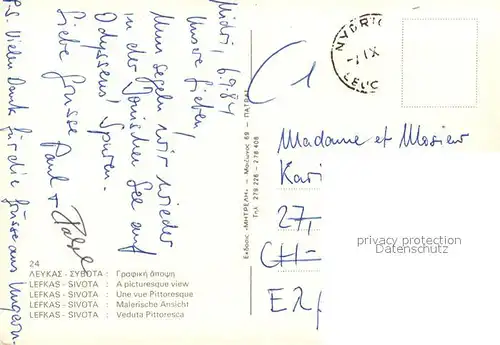 Nidri, 6.9.84
Unsre Lieben,
Nun segeln wir wieder
in der Ionischen See auf
Odysseus' Spuren.
Liebe Grüsse
Paul +
P.S. Vielen Dank für die Grüsse aus Ungarn.
24
ΛΕΥΚΑΣ - ΣΥΒΟΤΑ : Γραφική άποψη
LEFKAS - SIVOTA : A picturesque view
LEFKAS - SIVOTA : Une vue Pittoresque
LEFKAS - SIVOTA : Malerische Ansicht
LEFKAS - SIVOTA : Veduta Pittoresca
Εκδοσις «ΜΗΤΡΕΛΗ» — Μαιζώνος 69 - ΠΑΤΡΑΙ
Τηλ. 279.226 - 278.408
NYDRIO
LEUC
Madame et Mosieur
Kari
27
CH-
privacy protection
Datenschutz